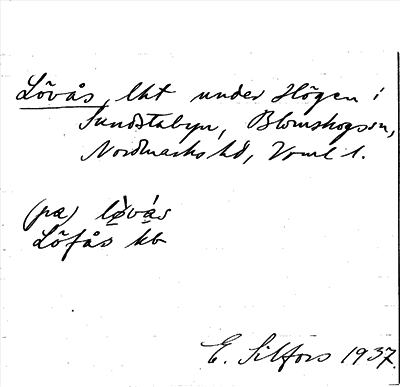 Lövås, lht under Högen i
Sundstabyn, Blomskogs sn,
Nordmarks hd, Vrml l.
(pa) lø̀vá̱s
Löfås kb
E. Silfors 1937.